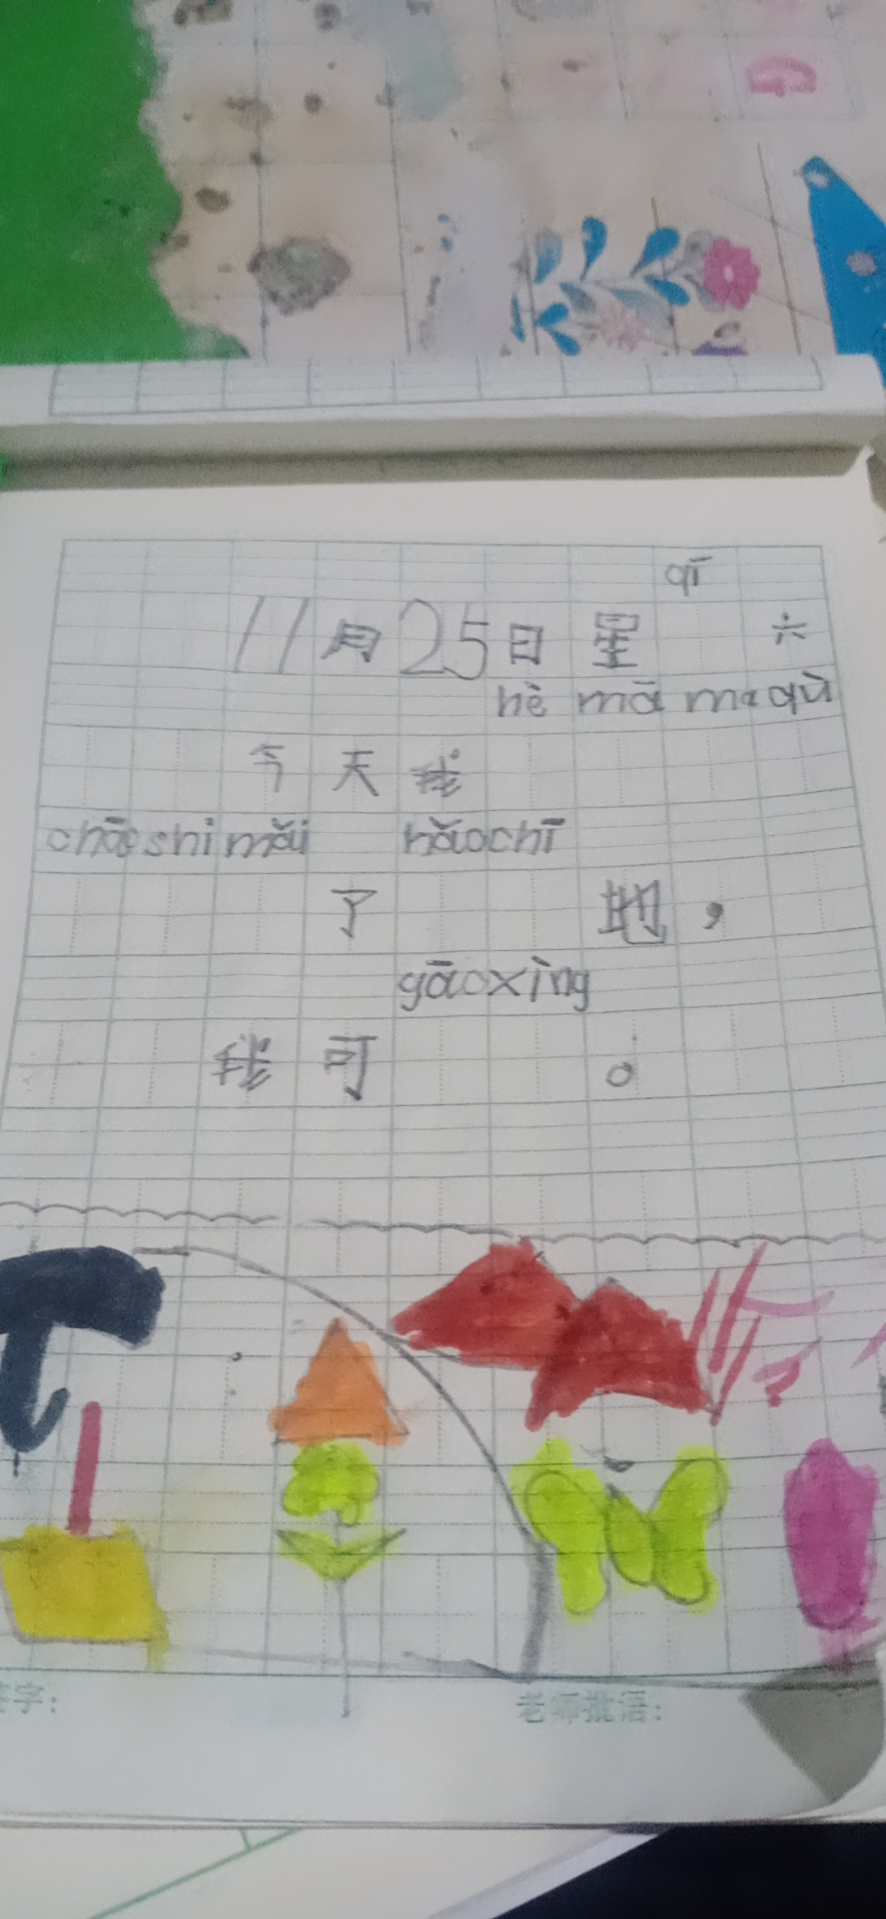 qī
11月25日星 六
hè mā ma qù
今天我
chāo shi mǎi hǎochī
了 地，
gāoxìng
我可 。
字：
老师批语：